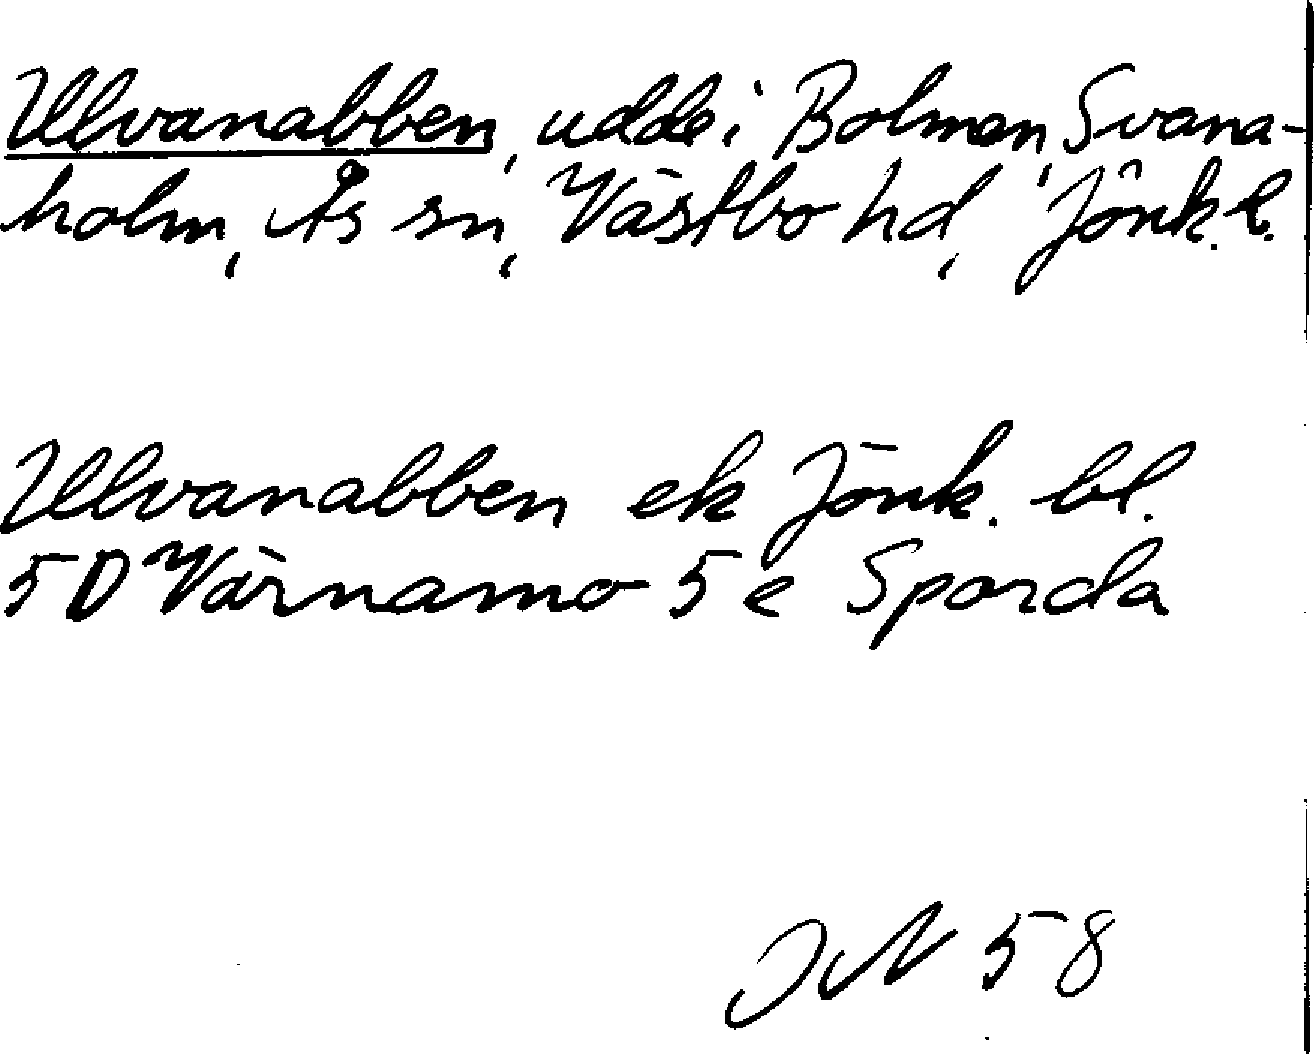 Ulvanabben, udde i Bolmen, Svana-
holm, Ås sn, Västbo hd, Jönk. l.
Ulvanabben ek Jönk. bl.
5D Värnamo 5e Sporda
IN 58